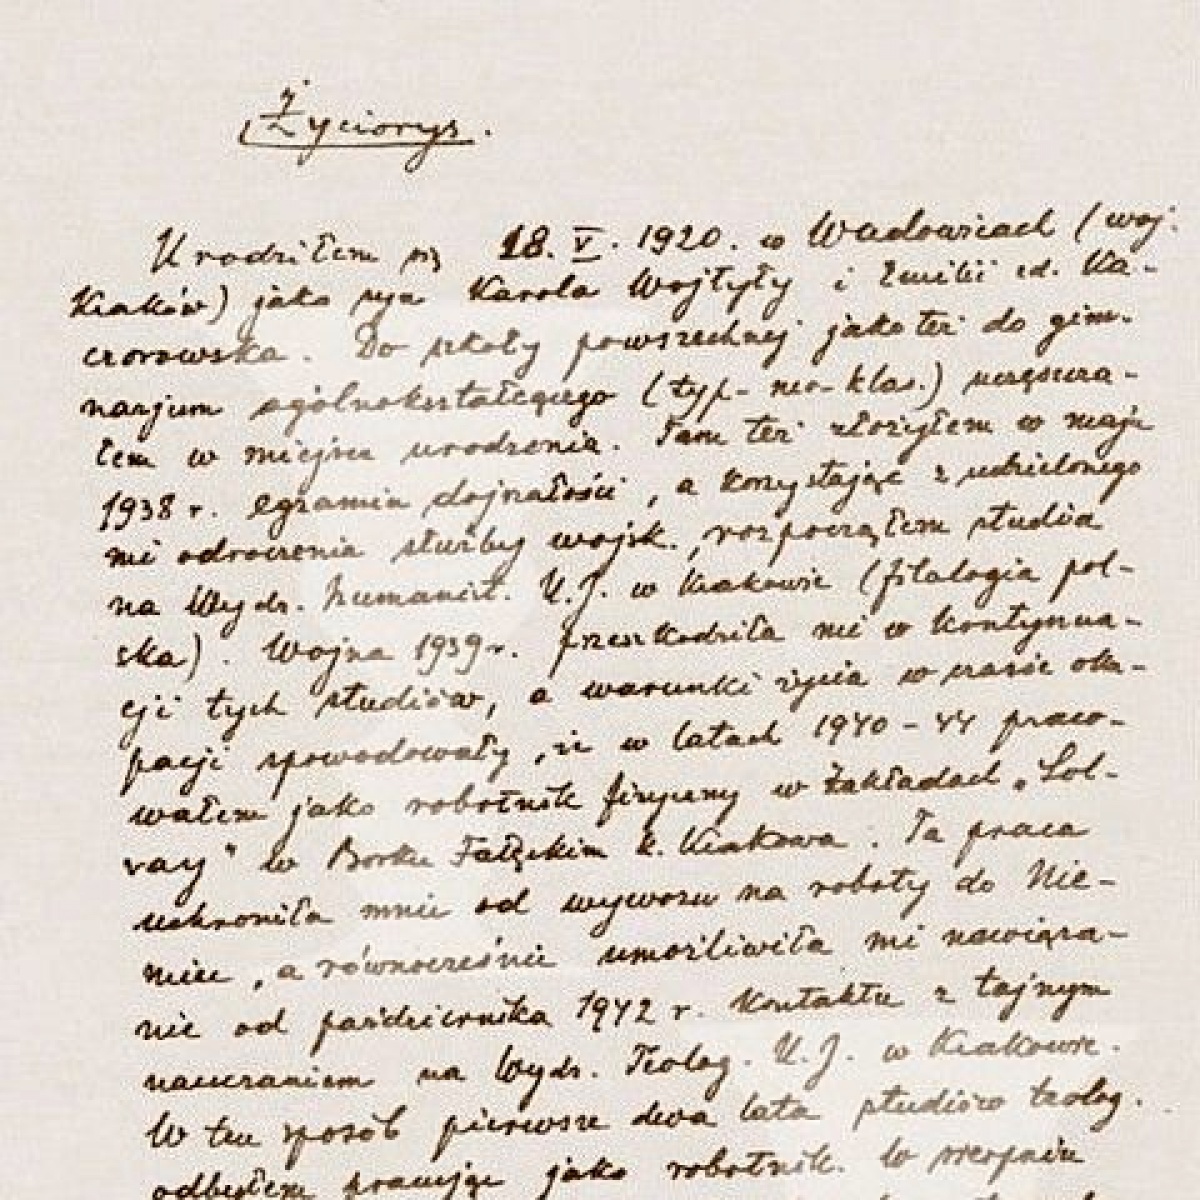 Życiorys.
Urodziłem się 18. V. 1920. w Wadowicach (woj.
Kraków) jako syn Karola Wojtyły i Emilii zd. Ka-
czorowska. Do szkoły powszechnej jako też do gim-
nazjum ogólnokształcącego (typ- neo-klas.) uczęszcza-
łem w miejscu urodzenia. Tam też złożyłem w maju
1938 r. egzamin dojrzałości, a korzystając z udzielonego
mi odroczenia służby wojsk., rozpocząłem studia
na Wydz. humanist. U.J. w Krakowie (filologia pol-
ska). Wojna 1939 r. przeszkodziła mi w kontynua-
cji tych studiów, a warunki życia w czasie oku-
pacji spowodowały, iż w latach 1940 - 44 praco-
wałem jako robotnik fizyczny w Zakładach „Sol-
vay" w Borku Fałęckim k. Krakowa. Ta praca
uchroniła mnie od wywozu na roboty do Nie-
miec, a równocześnie umożliwiła mi nawiąza-
nie od października 1942 r. kontaktu z tajnym
nauczaniem na Wydz. Teolog. U.J. w Krakowie.
W ten sposób pierwsze dwa lata studiów teolog.
odbyłem pracując jako robotnik. W sierpniu